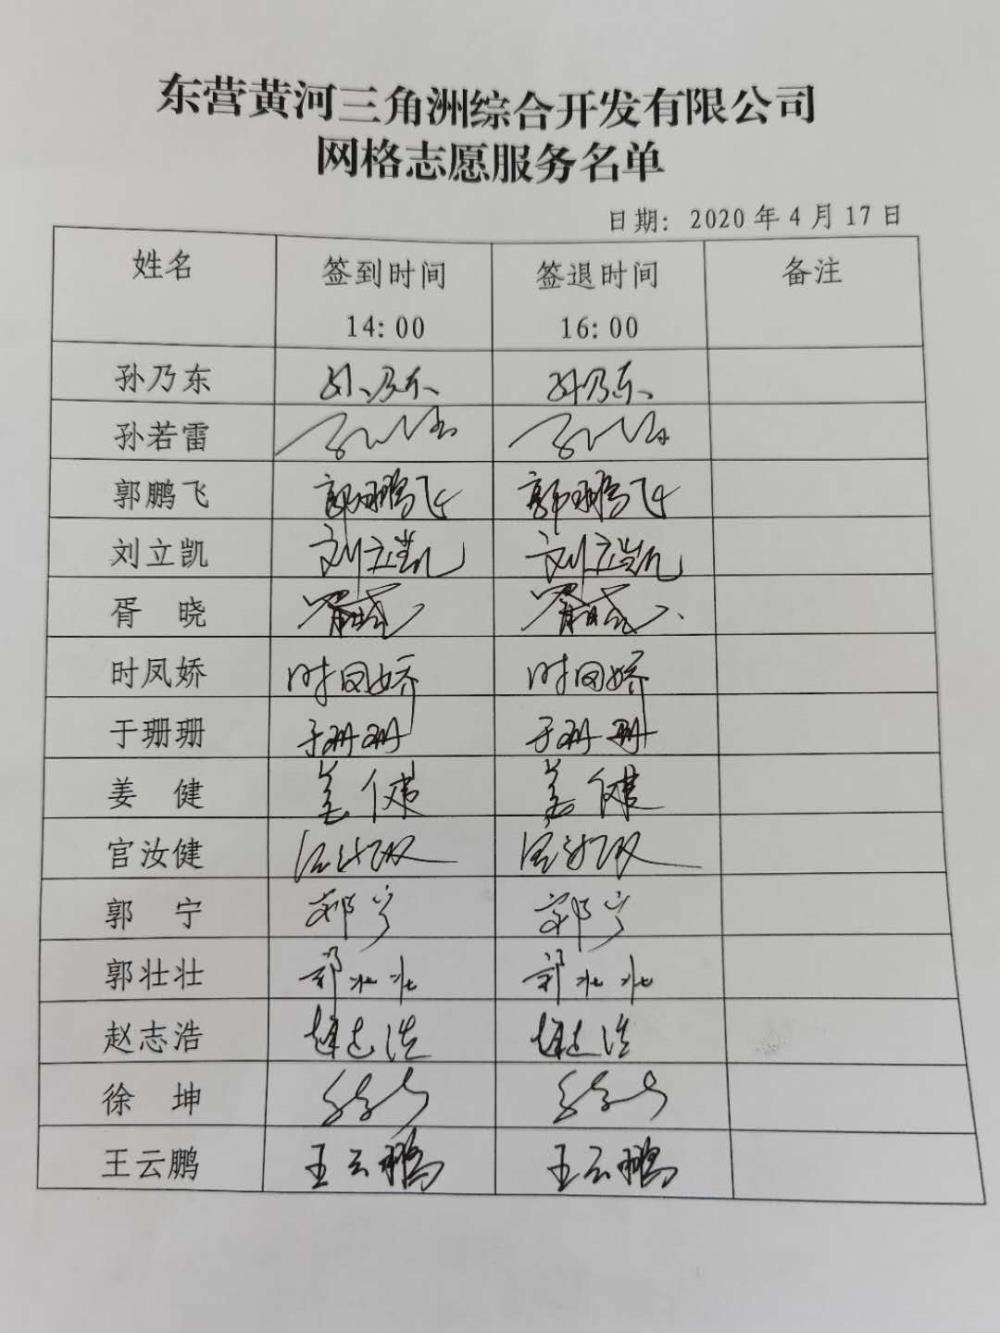 东营黄河三角洲综合开发有限公司
网格志愿服务名单
日期：2020年4月17日
姓名 签到时间 签退时间 备注
14：00 16：00
孙乃东 孙乃东 孙乃东
孙若雷
郭鹏飞 郭鹏飞 郭鹏飞
刘立凯 刘立凯 刘立凯
胥 晓 胥晓 胥晓
时凤娇 时凤娇 时凤娇
于珊珊 于珊珊 于珊珊
姜 健 姜健 姜健
官汝健
郭 宁 郭宁 郭宁
郭壮壮 郭壮壮 郭壮壮
赵志浩 赵志浩 赵志浩
徐 坤
王云鹏 王云鹏 王云鹏